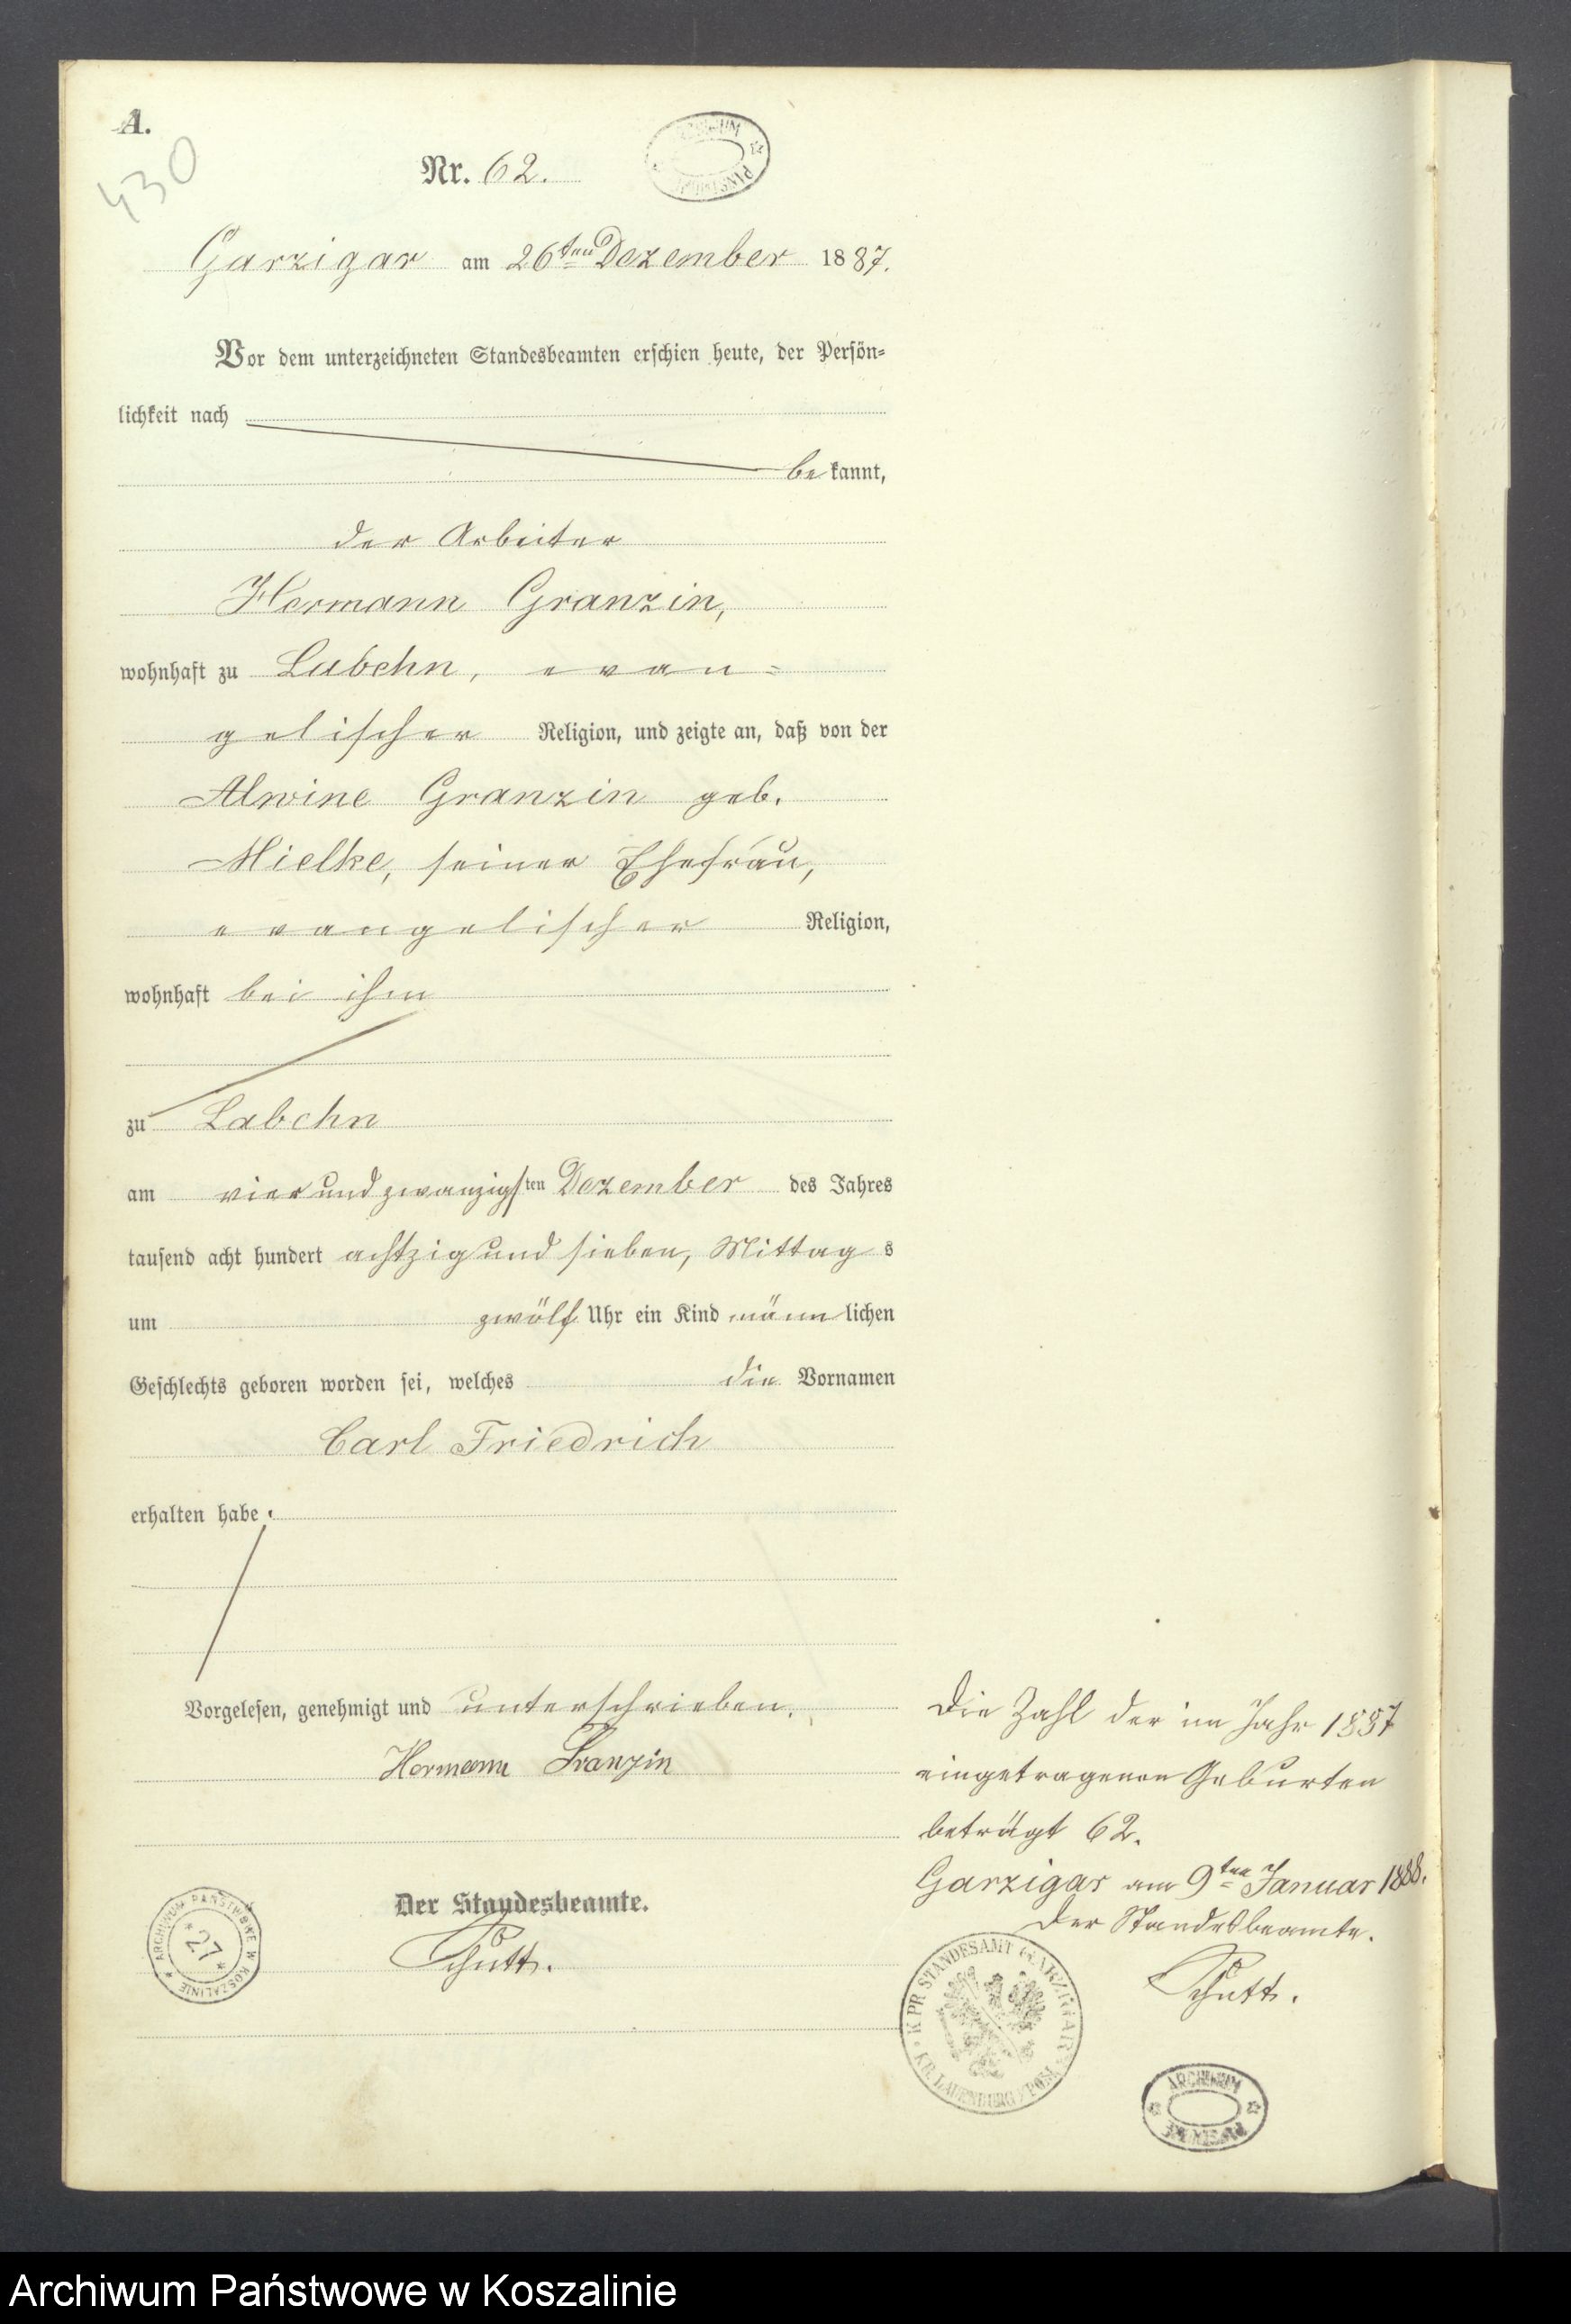 A.
430
Nr. 62.
ARCHIWUM PAŃSTWOWE
Garzigar am 26ten Dezember 1887.
Vor dem unterzeichneten Standesbeamten erschien heute, der Persön=
lichkeit nach
bekannt,
der Arbeiter
Hermann Granzin,
wohnhaft zu Labehn, evan=
gelischer Religion, und zeigte an, daß von der
Alwine Granzin geb.
Mielke, seiner Ehefrau,
evangelischer Religion,
wohnhaft bei ihm
zu Labehn
am vier und zwanzigsten Dezember des Jahres
tausend acht hundert achtzig und sieben, Mittags
um zwölf Uhr ein Kind männlichen
Geschlechts geboren worden sei, welches die Vornamen
Carl Friedrich
erhalten habe.
Vorgelesen, genehmigt und unterschrieben.
Hermann Granzin
Der Standesbeamte.
Schutt.
ARCHIWUM PAŃSTWOWE W KOSZALINIE
* 27 *
Die Zahl der im Jahr 1887
eingetragenen Geburten
beträgt 62.
Garzigar am 9ten Januar 1888.
Der Standesbeamte.
Schutt.
K. PR. STANDESAMT GARZIGAR
KR. LAUENBURG i/POM.
ARCHIWUM PAŃSTWOWE
Archiwum Państwowe w Koszalinie